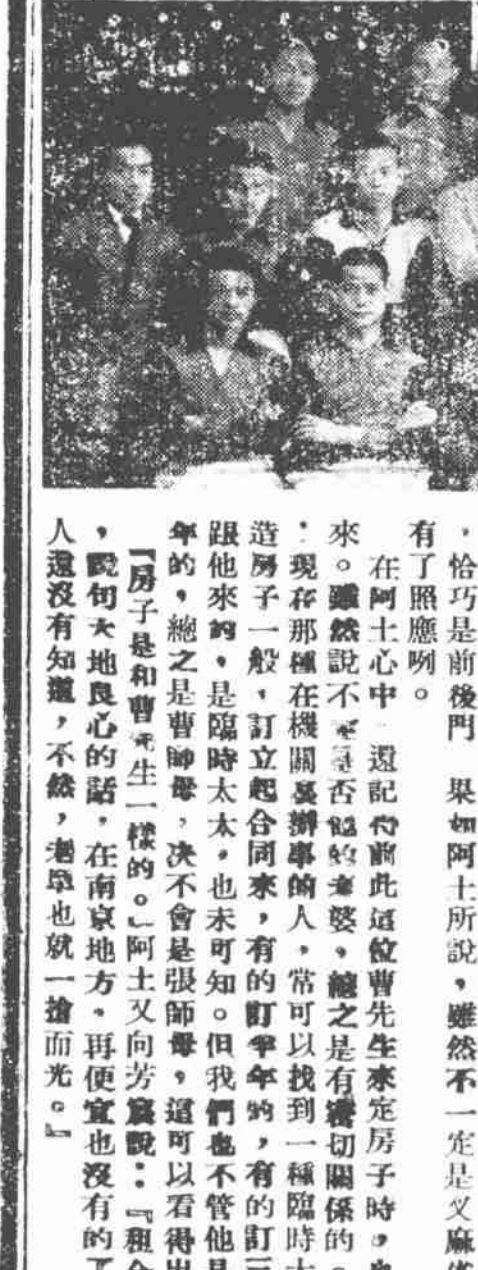 ，恰巧是前後門　果如阿土所說，雖然不一定是义麻
有了照應咧。
在阿土心中　還記得前此這位曹先生來定房子時，
來。雖然說不　是否他的老婆，總之是有密切關係的。
：現在那種在機關裏辦事的人，常可以找到一種臨時
造房子一般，訂立起合同來，有的訂半年的，有的訂
跟他來的，是臨時太太，也未可知。但我們也不管他是
年的，總之是曹師母，决不會是張師母，這可以看得出
「房子是和曹先生一樣的。」阿土又向芳宸說：『租
，說句天地良心的話，在南京地方，再便宜也沒有的了
人還沒有知道，不然，老早也就一搶而光。』